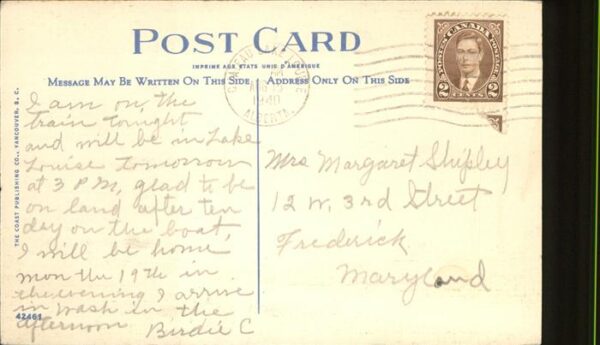 POST CARD
IMPRIME AUX ETATS UNIS D'AMERIQUE
MESSAGE MAY BE WRITTEN ON THIS SIDE
ADDRESS ONLY ON THIS SIDE
I am on, the
train tonight
and will be in Lake
Louise tomorrow
at 3 P M, glad to be
on land after ten
day on the boat,
I will be home,
mon the 19th in
the evening I arrive
in Wash in the
afternoon Birdie C
Mrs Margaret Shipley
12 W. 3rd Street
Frederick
Maryland
POSTES CANADA POSTAGE
2 CENTS 2
CHATEAU LAKE LOUISE
1940
ALBERTA
THE COAST PUBLISHING CO., VANCOUVER, B. C.
42461